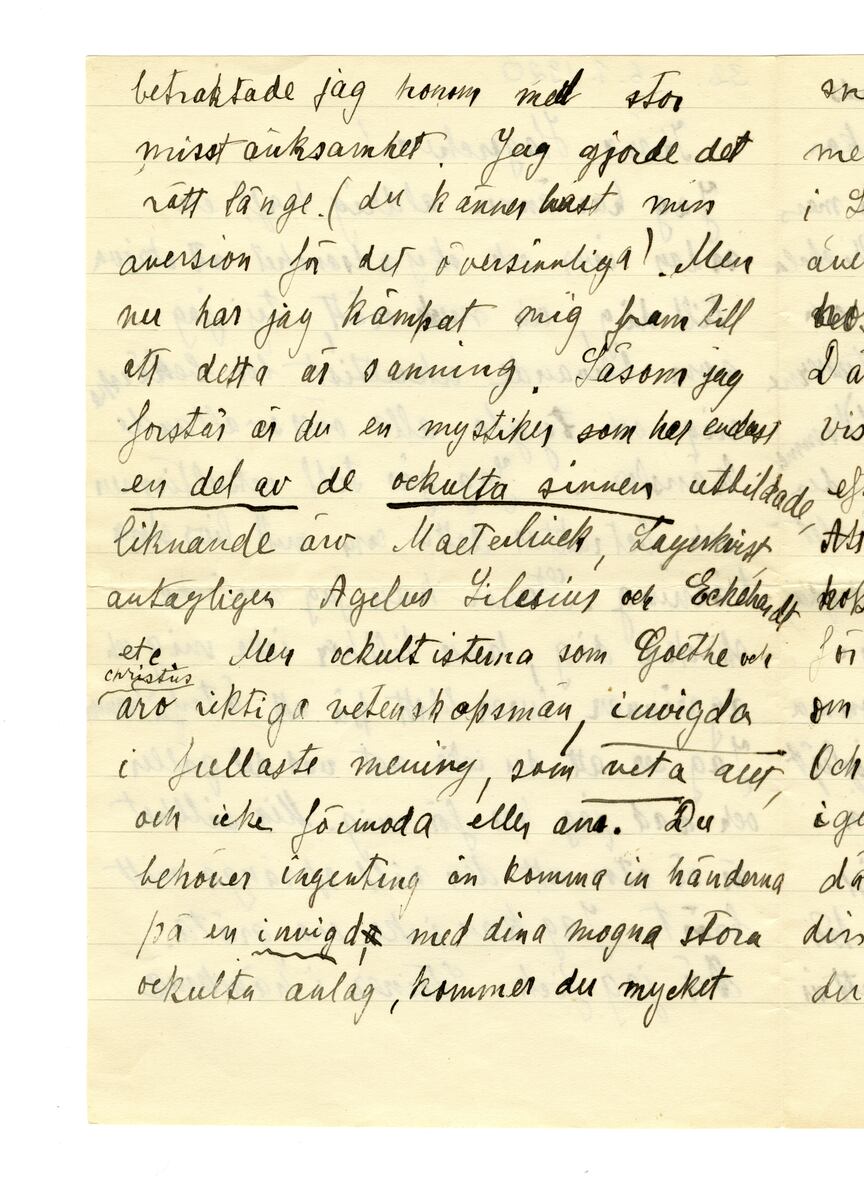 betraktade jag honom med stor
misstänksamhet. Jag gjorde det
rätt länge. (du känner bäst min
aversion för det översinnliga). Men
nu har jag kämpat mig fram till
att detta är sanning. Såsom jag
forstår är du en mystiker som har endast
en del av de ockulta sinnen utbildade,
liknande äro Maeterlinck, Lagerkvist,
antagligen Agelus Silesius och Eckehardt
etc Men ockultisterna som Goethe och
christus
äro riktiga vetenskapsmän, invigda
i fullaste mening, som veta allt,
och icke förmoda eller ana. Du
behöver ingenting än komma in händerna
på en invigd, med dina mogna stora
ockulta anlag, kommer du mycket
sn
me
i L
äve
Dä
vis
ef
för
om
Och
ige
dä
din
du